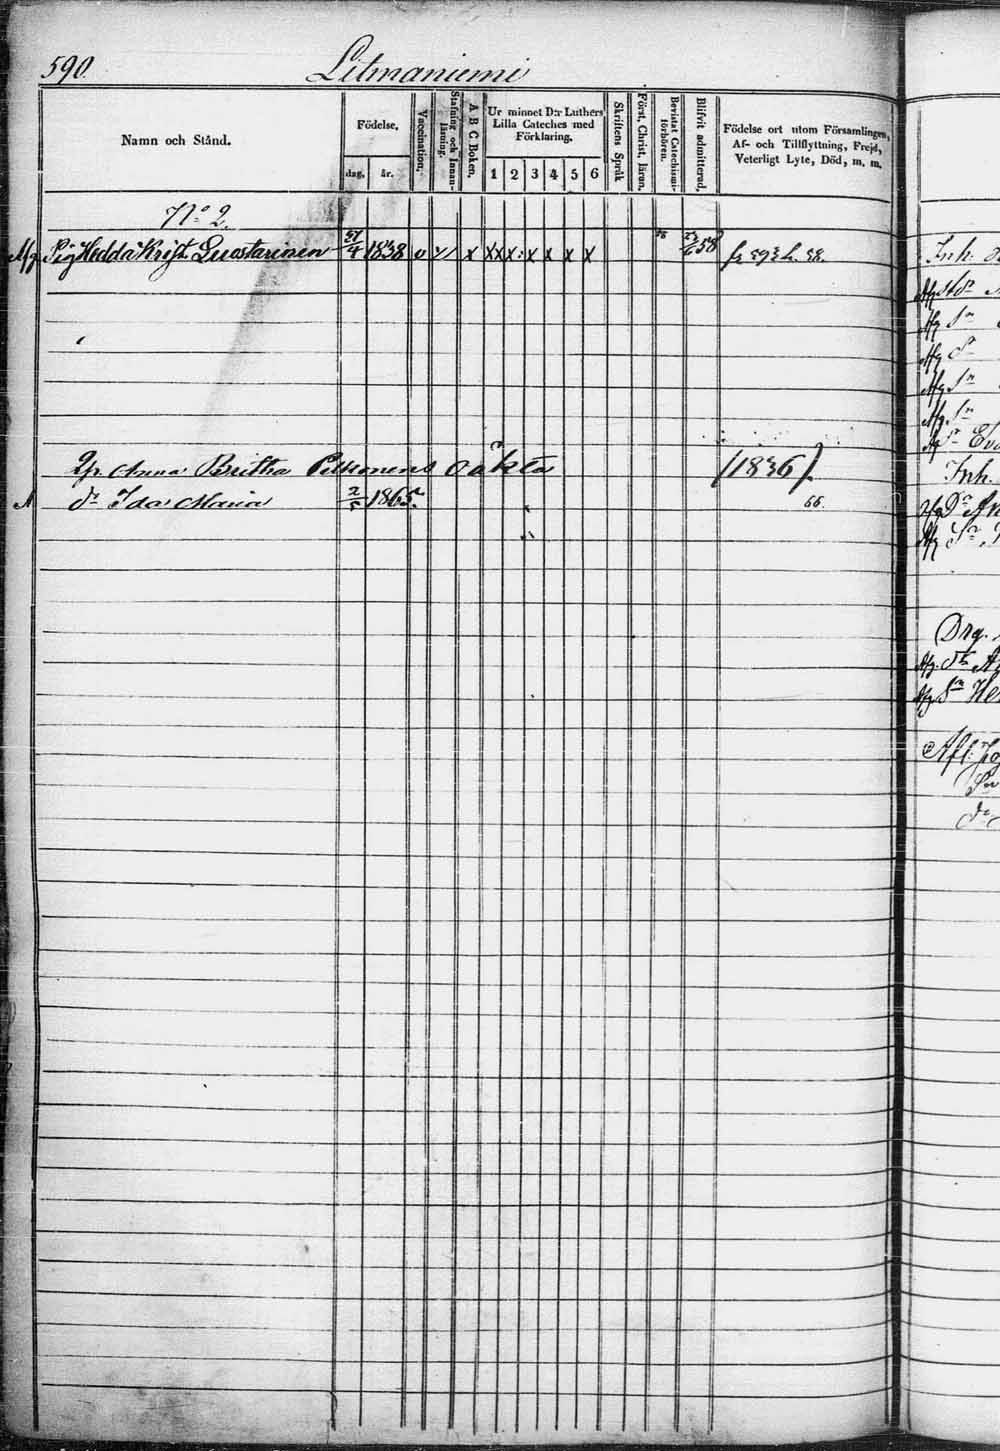 590.
Litmaniemi
Namn och Stånd.
Födelse,
dag. år.
Vaccination,
Stafning och Innanläsning.
A B C Boken.
Ur minnet D:r Luthers Lilla Cateches med Förklaring.
1 2 3 4 5 6
Skriftens Språk
Först. Christ. läran.
Bevistat Catechismiförhören.
Blifvit admitterad.
Födelse ort utom Församlingen,
Af- och Tillflyttning, Frejd,
Veterligt Lyte, Död, m. m.
No 2.
Afg Pig Hedda Krist. Luostarinen 1838 v x x x x x x x x 58
Anna Britha Pelkonens oäkta (1836).
A dr Ida Maria 2/5 1865. 66.
Inh.
Afg
Afg Sn
Afg
Afg Sn
Afg Sn
Inh.
Afg Dr An
Afg Sn
Drg.
Afg. dr
Afg Sn
Afl:
Sn